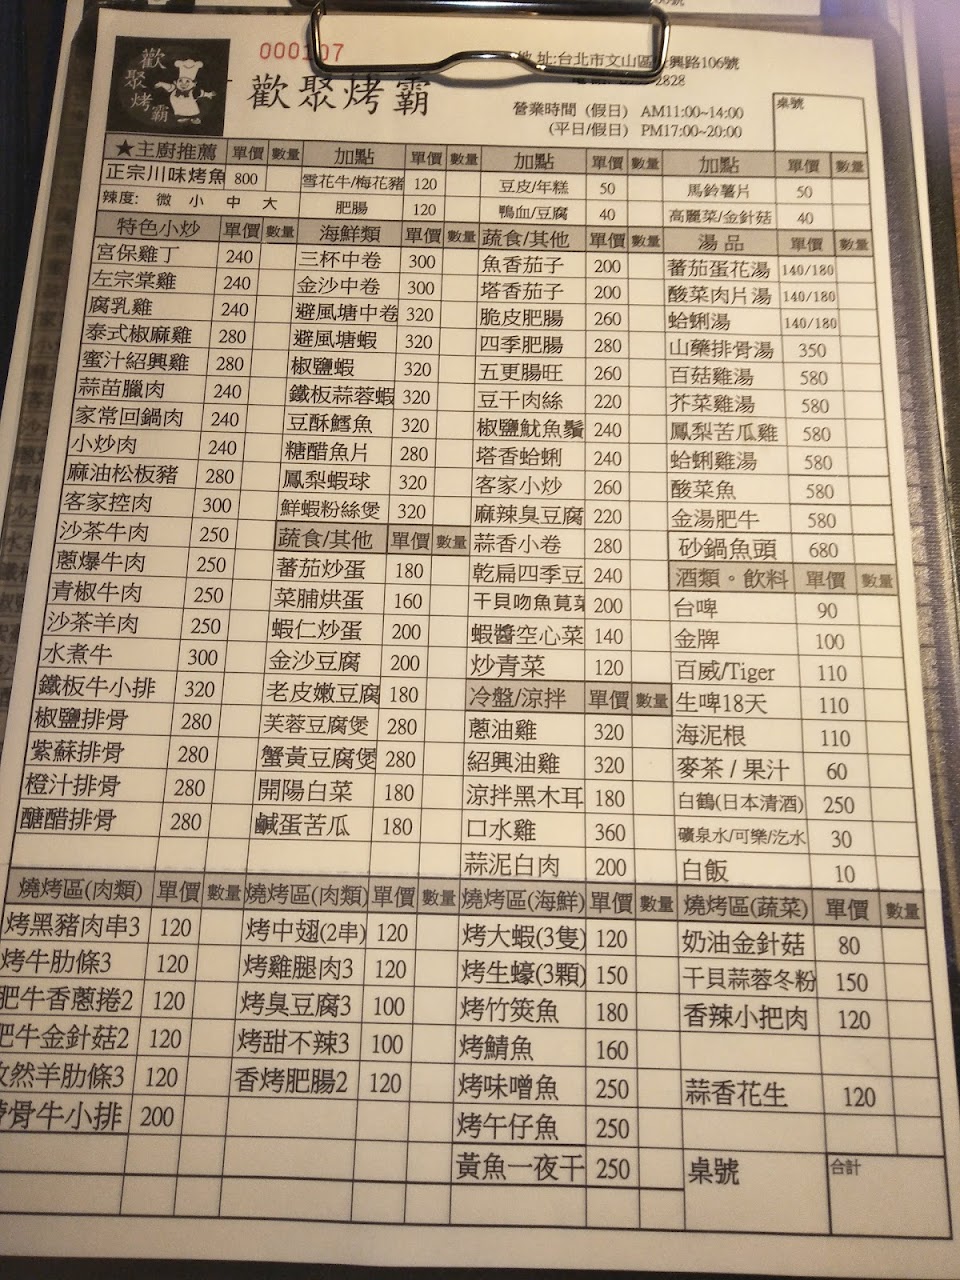 歡聚烤霸
000107
歡聚烤霸
址:台北市文山區 興路106號
2828
營業時間 (假日) AM11:00~14:00
(平日/假日) PM17:00~20:00
桌號
★主廚推薦 單價 數量 加點 單價 數量 加點 單價 數量 加點 單價 數量
正宗川味烤魚 800 雪花牛/梅花豬 120 豆皮/年糕 50 馬鈴薯片 50
辣度: 微 小 中 大 肥腸 120 鴨血/豆腐 40 高麗菜/金針菇 40
特色小炒 單價 數量 海鮮類 單價 數量 蔬食/其他 單價 數量 湯品 單價 數量
宮保雞丁 240 三杯中卷 300 魚香茄子 200 蕃茄蛋花湯 140/180
左宗棠雞 240 金沙中卷 300 塔香茄子 200 酸菜肉片湯 140/180
腐乳雞 240 避風塘中卷 320 脆皮肥腸 260 蛤蜊湯 140/180
泰式椒麻雞 280 避風塘蝦 320 四季肥腸 280 山藥排骨湯 350
蜜汁紹興雞 280 椒鹽蝦 320 五更腸旺 260 百菇雞湯 580
蒜苗臘肉 240 鐵板蒜蓉蝦 320 豆干肉絲 220 芥菜雞湯 580
家常回鍋肉 240 豆酥鱈魚 320 椒鹽魷魚鬚 240 鳳梨苦瓜雞 580
小炒肉 240 糖醋魚片 280 塔香蛤蜊 240 蛤蜊雞湯 580
麻油松板豬 280 鳳梨蝦球 320 客家小炒 260 酸菜魚 580
客家控肉 300 鮮蝦粉絲煲 320 麻辣臭豆腐 220 金湯肥牛 580
沙茶牛肉 250 蔬食/其他 單價 數量 蒜香小卷 280 砂鍋魚頭 680
蔥爆牛肉 250 蕃茄炒蛋 180 乾扁四季豆 240 酒類。飲料 單價 數量
青椒牛肉 250 菜脯烘蛋 160 干貝吻魚莧菜 200 台啤 90
沙茶羊肉 250 蝦仁炒蛋 200 蝦醬空心菜 140 金牌 100
水煮牛 300 金沙豆腐 200 炒青菜 120 百威/Tiger 110
鐵板牛小排 320 老皮嫩豆腐 180 冷盤/涼拌 單價 數量 生啤18天 110
椒鹽排骨 280 芙蓉豆腐煲 280 蔥油雞 320 海泥根 110
紫蘇排骨 280 蟹黃豆腐煲 280 紹興油雞 320 麥茶/果汁 60
橙汁排骨 280 開陽白菜 180 涼拌黑木耳 180 白鶴(日本清酒) 250
醣醋排骨 280 鹹蛋苦瓜 180 口水雞 360 礦泉水/可樂/汽水 30
蒜泥白肉 200 白飯 10
燒烤區(肉類) 單價 數量 燒烤區(肉類) 單價 數量 燒烤區(海鮮) 單價 數量 燒烤區(蔬菜) 單價 數量
烤黑豬肉串3 120 烤中翅(2串) 120 烤大蝦(3隻) 120 奶油金針菇 80
烤牛肋條3 120 烤雞腿肉3 120 烤生蠔(3顆) 150 干貝蒜蓉冬粉 150
肥牛香蔥捲2 120 烤臭豆腐3 100 烤竹筴魚 180 香辣小把肉 120
肥牛金針菇2 120 烤甜不辣3 100 烤鯖魚 160
孜然羊肋條3 120 香烤肥腸2 120 烤味噌魚 250 蒜香花生 120
帶骨牛小排 200 烤午仔魚 250
黃魚一夜干 250 桌號 合計